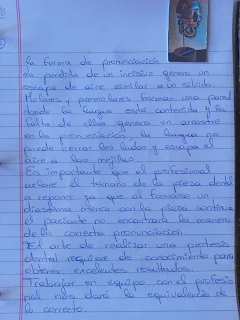 la forma de pronunciación
la perdida de un incisivo genera un
escape de aire similar a un silbido
Molares y premolares forman una pared
donde la lengua esta contenida y la
falta de ellos genera un arrastre
en la pronunciación la lengua no
puede cerrar los lados y escapa el
aire a las mejillas.
Es importante que el profesional
aclare el tamaño de la pieza dental
a reponer ya que al formarse un
diastema menor con la pieza contigua
el paciente no encontrará la manera
de la correcta pronunciación.
El arte de realizar una protesis
dental requiere de conocimiento para
obtener excelentes resultados.
Trabajar en equipo con el profesio
nal nos dará la equivalencia de
lo correcto.